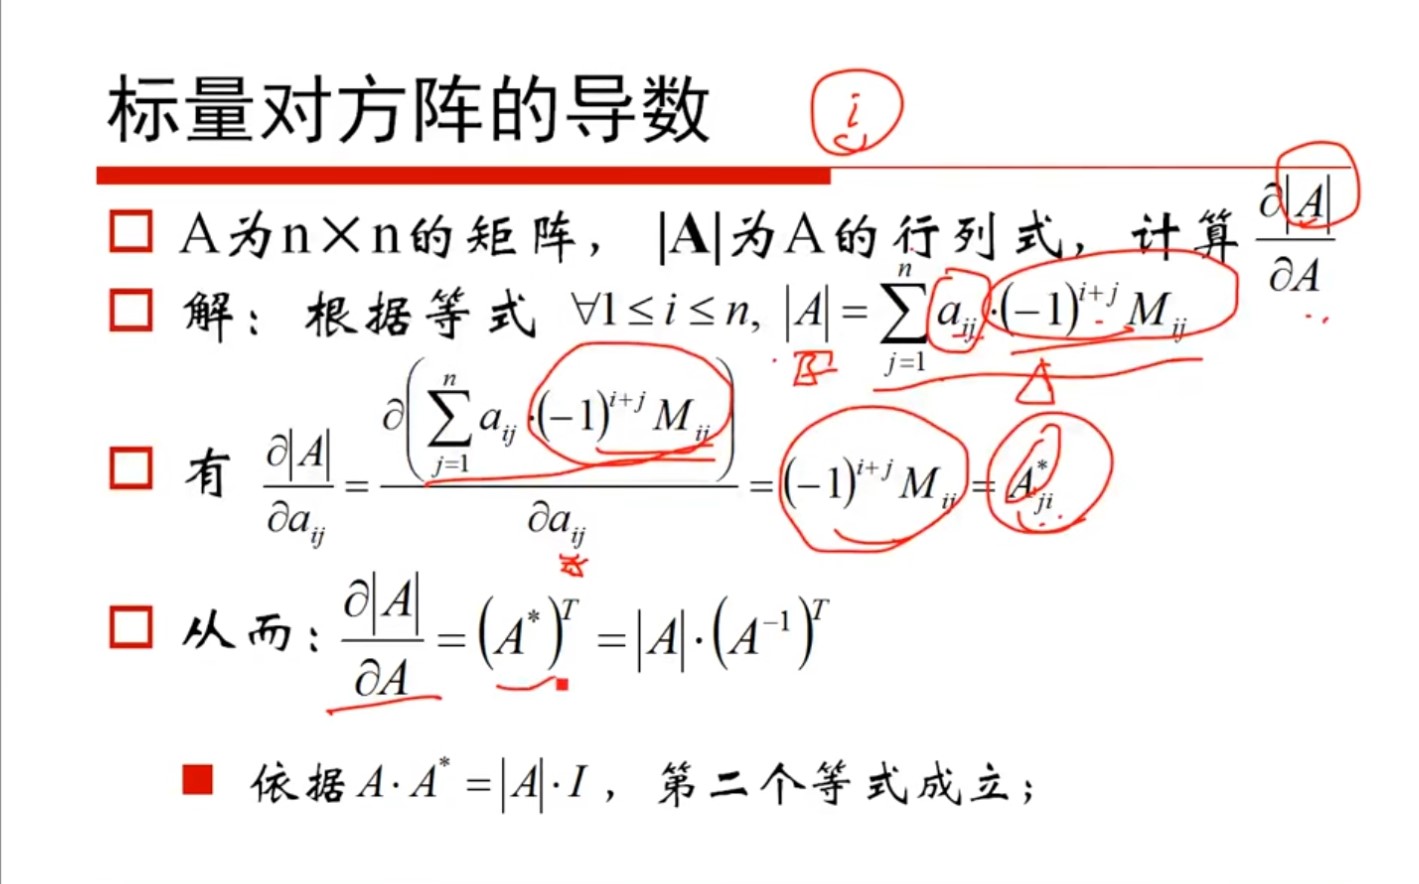 标量对方阵的导数
i
A为n×n的矩阵，|A|为A的行列式，计算 ∂|A|/∂A
解：根据等式 ∀1≤i≤n, |A| = ∑_{j=1}^{n} a_{ij}·(−1)^{i+j} M_{ij}
有 ∂|A|/∂a_{ij} = ∂(∑_{j=1}^{n} a_{ij}·(−1)^{i+j} M_{ij})/∂a_{ij} = (−1)^{i+j} M_{ij} = A^*_{ji}
从而：∂|A|/∂A = (A^*)^T = |A|·(A^{−1})^T
依据 A·A^* = |A|·I，第二个等式成立；